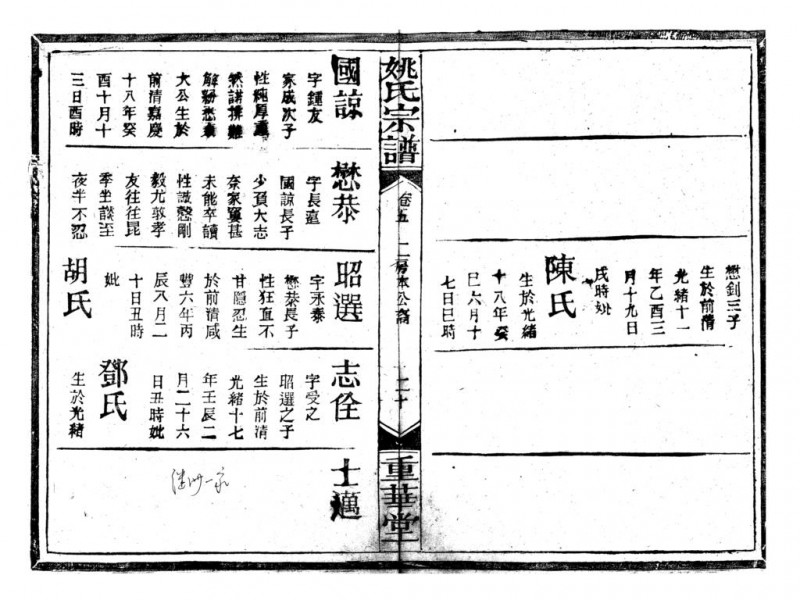 懋釗三子
生於前清
光緒十一
年乙酉三
月十九日
戌時妣
陳氏
生於光緒
十八年癸
巳六月十
七日巳時
姚氏宗譜
卷五
二房本公裔
二十
重華堂
國諒
字鍾友
家成次子
性純厚
然諾排難
解紛懋義
大公生於
前清嘉慶
十八年癸
酉十月十
三日酉時
懋恭
字長
國諒長子
少頂大志
奈家寠甚
未能卒讀
性識慤剛
毅尤敦孝
友往往昆
季坐談至
夜半不忍
昭選
字永泰
懋恭長子
性狂直不
甘隱忍生
於前清咸
豐六年丙
辰八月二
十日丑時
妣
胡氏
志佺
字受之
昭選之子
生於前清
光緒十七
年壬辰二
月二十六
日丑時妣
鄧氏
生於光緒
士邁